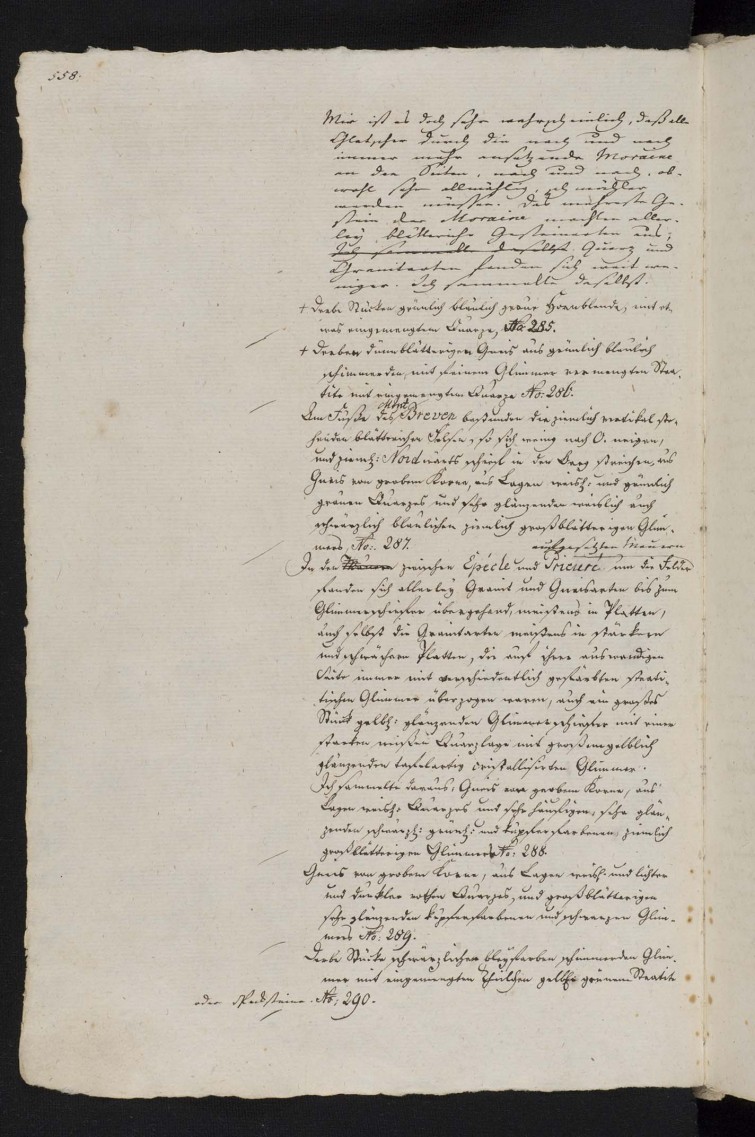 558.
Mir ist es doch sehr wahrscheinlich, daß alle
Gletscher durch die nach und nach
immer mehr ansetzende Moraine
an den Seiten, nach und nach, ob-
wohl sehr allmählig, sich
werden müssen. Das mehreste Ge-
stein der Moraine machten aller-
ley blätteriche Gesteinarten aus;
Ich sammelte daselbst Quarz und
Granitarten fanden sich weit we-
niger. Ich sammelte daselbst.
+ Derbe Stücken grünlich bläulich graue Hornblende, mit et-
was eingemengtem Quarze, No: 285.
+ Derben dünnblätterigen Gneis aus grünlich bläulich
schimmernden, mit feinem Glimmer vermengten Stea-
tite mit eingemengtem Quarze No: 286.
Am Fuße des Mont Breven bestunden die ziemlich vertikal ste-
henden blätterichen Felsen, so sich wenig nach O. neigen,
und ziemh: Nordwärts schief in den Berg streichen, aus
Gneis von grobem Korne, aus Lagen weish: und grünlich
grauen Quarzes und sehr glänzenden weislich auch
schwärzlich bläulichen ziemlich großblätterigen Glim-
mers, No: 287.
aufgesetzten Mauern
In den Mauern zwischen Epécle und Prieuré um die Felder
fanden sich allerley Granit und Gneisarten bis zum
Glimmerschiefer übergehend, meistens in Platten,
auch selbst die Granitarten meistens in stärkern
und schwächern Platten, die auf ihrer auswendigen
Seite immer mit verschiedentlich gefärbten steati-
tischen Glimmer überzogen waren, auch ein großes
Stück gelbh: glänzenden Glimmerschiefer mit einer
starken weißen Quarzlage mit großem gelblich
glänzenden tafelartig cristallisirten Glimmer.
Ich sammelte daraus, Gneis von grobem Korne, aus
Lagen weish: Quarzes und sehr häufigen, sehr glän-
zenden schwärzh: grünh: und kupferfarbenen, ziemlich
großblätterigen Glimmers No: 288.
Gneis von grobem Korne, aus Lagen weish: und lichter
und dunkler rothen Quarzes, und großblätterigen
sehr glänzenden kupferfarbenen und schwarzen Glim-
mers No: 289.
Derbe Stücke schwärzlichen bleyfarben schimmernden Glim-
mer mit eingemengten Theilchen gelbh: grünem Steatite
oder Specksteine. No: 290.